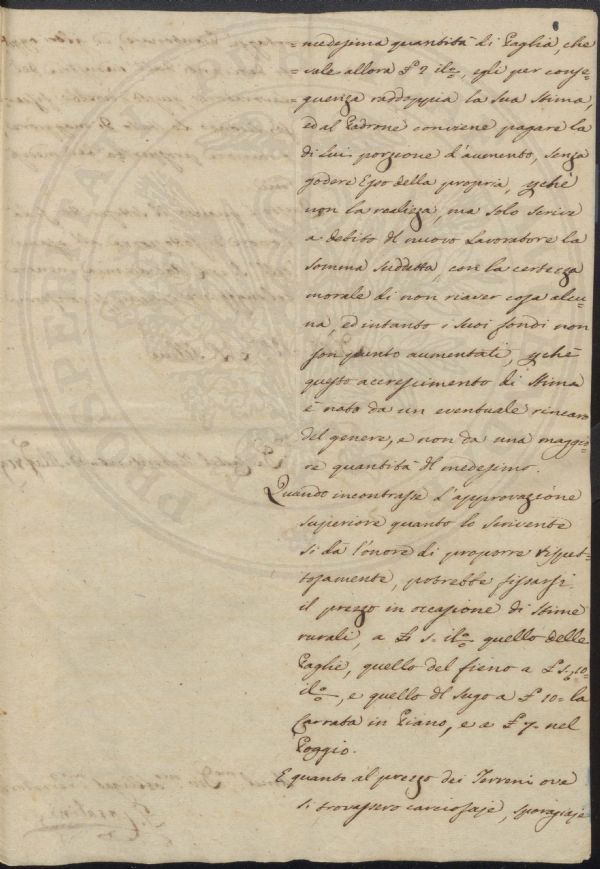 medesima quantità di Paglia, che
vale allora £ 7 il %, egli per conse=
guenza raddoppia la sua Stima,
ed al Padrone conviene pagare la
di lui porzione d'aumento, senza
godere Esso della propria, perchè
non la realizza, ma solo scrive
a debito del nuovo Lavoratore la
somma suddetta, con la certezza
morale di non riaver cosa alcu=
na, ed intanto i suoi fondi non
son punto aumentati, perchè
questo accrescimento di Stima
è nato da un eventuale rincaro
del genere, e non da una maggio=
re quantità del medesimo.
Quando incontrasse l'approvazione
superiore quanto lo scrivente
si dà l'onore di proporre rispet=
tosamente, potrebbe fissarsi
il prezzo in occasione di Stime
rurali, a £ 5. il % quello delle
Paglie, quello del fieno a £ 5.10
il %, e quello del sugo a £ 10 la
Carrata in Piano, e a £ 7. nel
Poggio.
E quanto al prezzo dei Terreni ove
si trovassero carciofaje, sparagiaje